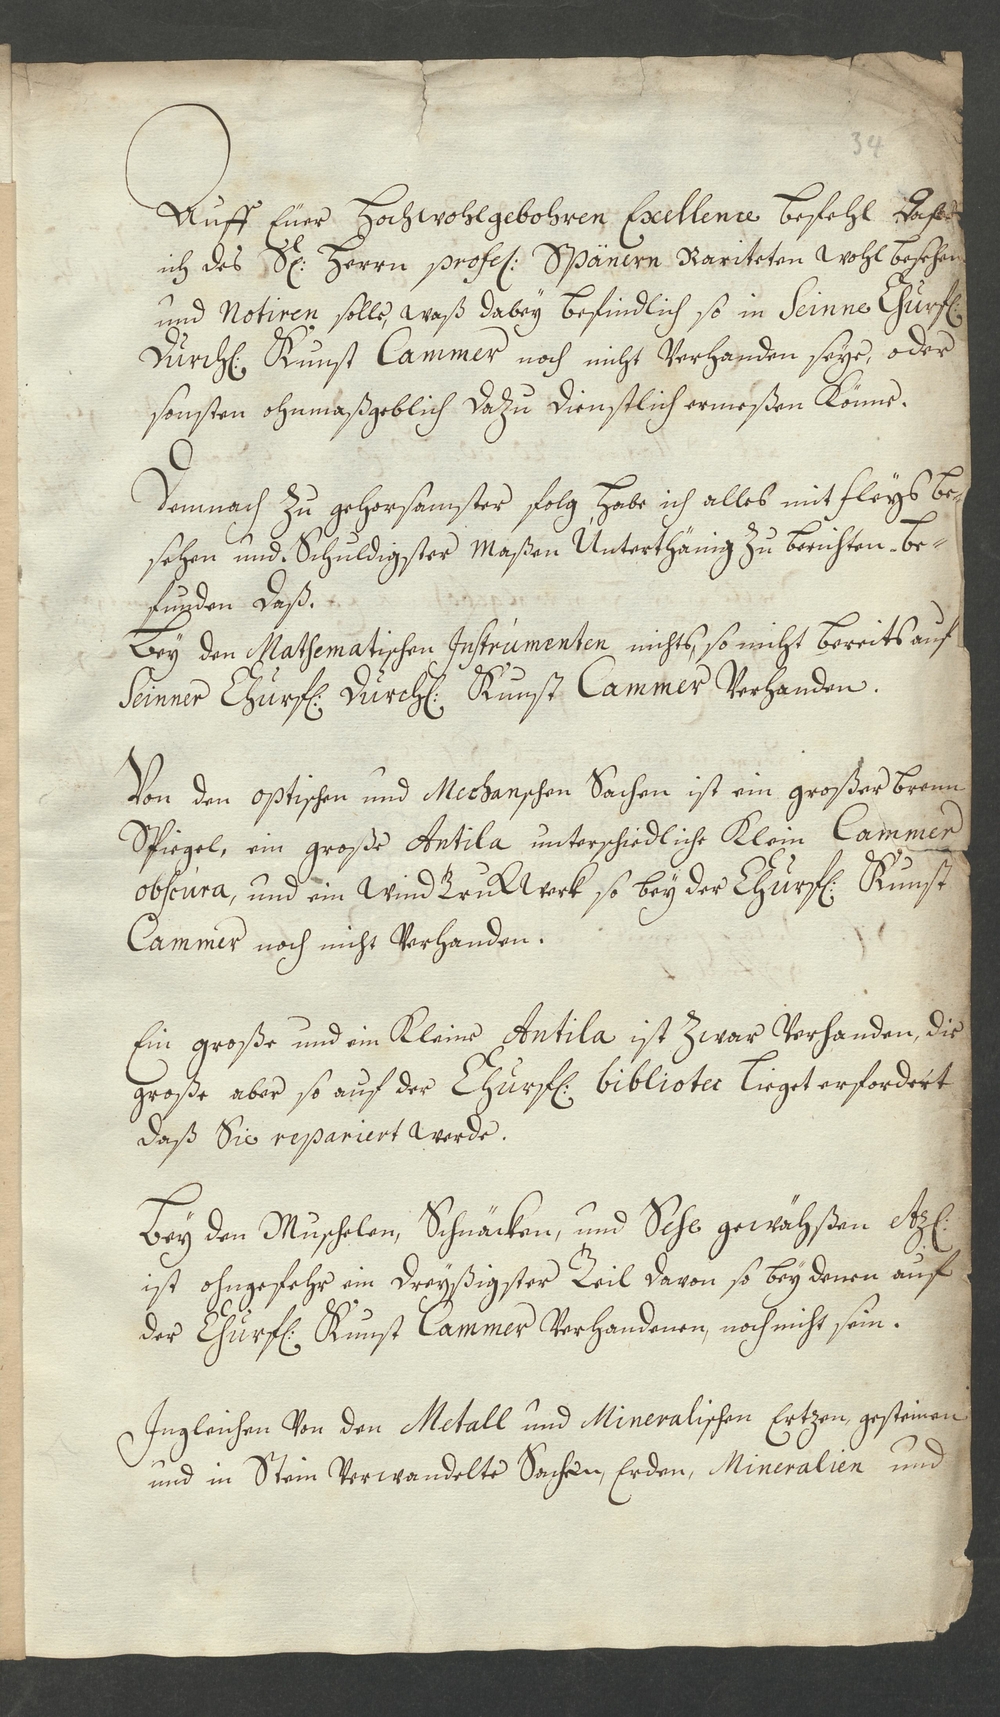 34
Auff Euer Hochwohlgebohren Excellence befehl daß
ich des Sel: Herrn profes: Spänern Rariteten wohl besehen
und Notiren solle, waß dabey befindlich so in Seinne Churfl:
Durchl: Kunst Cammer noch nicht Verhanden seye, oder
sonsten ohnmaßgeblich dazu dienstlich ermeßen Könne.
Demnach zu gehorsamster folg habe ich alles mit fleÿs be-
sehen und Schuldigster Maßen Unterthänig zu berichten be-
funden daß.
Beÿ den Mathematischen Instrumenten nichts, so nicht bereits auf
Seinner Churfl: Durchl: Kunst Cammer Verhanden.
Von den optischen und Mechanschen Sachen ist ein großer brenn
Spiegel, ein große Antila unterschiedliche Klein Cammer
obscura, und ein Wind Werk so beÿ der Churfl: Kunst
Cammer noch nicht Verhanden.
Ein große und ein Kleine Antila ist zwar Verhanden, die
große aber so auf der Churfl: bibliotec lieget erfordert
daß Sie repariert werde.
Beÿ den Muschelen, Schnäcken, und Sehe gewähßen
ist ohngefehr ein dreÿßigster Teil davon so beÿ denen auf
der Churfl: Kunst Cammer Verhandenen, noch nicht sein.
Ingleichen Von den Metall und Mineralischen Ertzen, gesteinen
und in Stein Verwandelte Sachen, Erden, Mineralien und